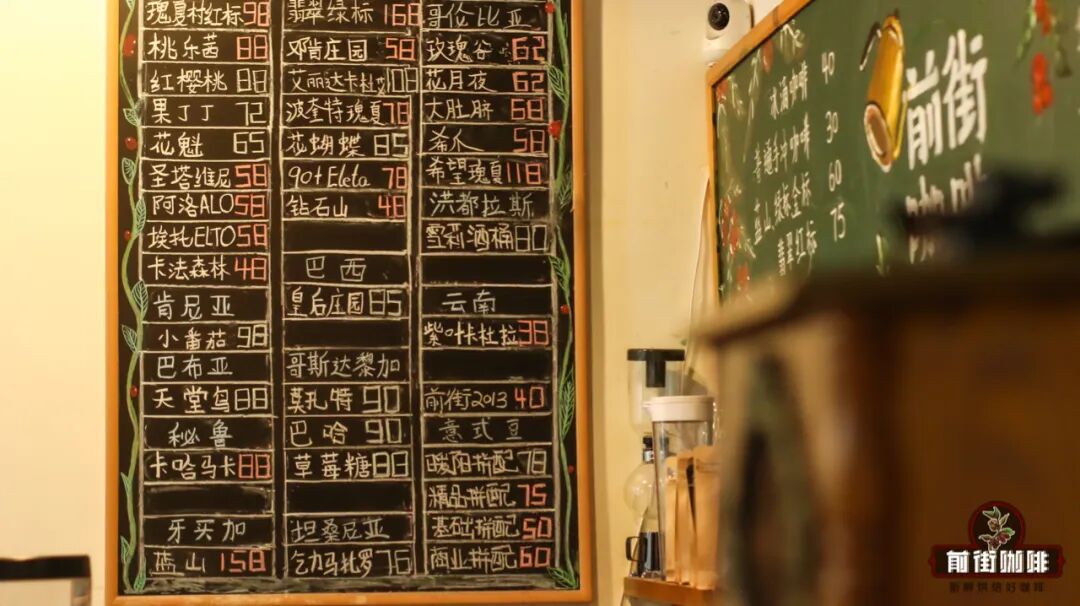 瑰夏村红标 98
桃乐茜 88
红樱桃 88
果丁丁 72
花魁 65
圣塔维尼 58
阿洛ALO 58
埃扎ELTO 58
卡法森林 48
肯尼亚
小番茄 98
巴布亚
天堂鸟 88
秘鲁
卡哈马卡 88
牙买加
蓝山 158
翡翠绿标 168
邓肯庄园 58
艾丽达卡杜艾 108
波奎特瑰夏 78
花蝴蝶 85
90+Eleta 78
钻石山 48
巴西
皇后庄园 85
哥斯达黎加
莫扎特 90
巴哈 90
草莓糖 88
坦桑尼亚
乞力马扎罗 76
哥伦比亚
玫瑰谷 62
花月夜 62
大肚脐 68
希爪 58
希望瑰夏 118
洪都拉斯
雪莉酒桶 80
云南
紫叶卡杜拉 38
前街2013 40
意式豆
暖阳拼配 78
精品拼配 75
基础拼配 50
商业拼配 60
前街
咖啡
冰滴咖啡 40
普通手冲咖啡 30
蓝山,绿标,金标 60
翡翠红标 75
前街咖啡
新鲜烘焙好咖啡